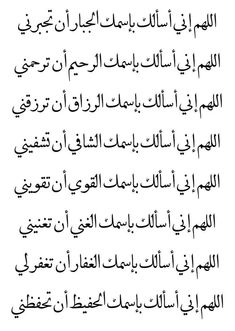 اللهم إني أسألك بإسمك الجبار أن تجبرني
اللهم إني أسألك بإسمك الرحيم أن ترحمني
اللهم إني أسألك بإسمك الرزاق أن ترزقني
اللهم إني أسألك بإسمك الشافي أن تشفيني
اللهم إني أسألك بإسمك القوي أن تقويني
اللهم إني أسألك بإسمك الغني أن تغنيني
اللهم إني أسألك بإسمك الغفار أن تغفر لي
اللهم إني أسألك بإسمك الحفيظ أن تحفظني